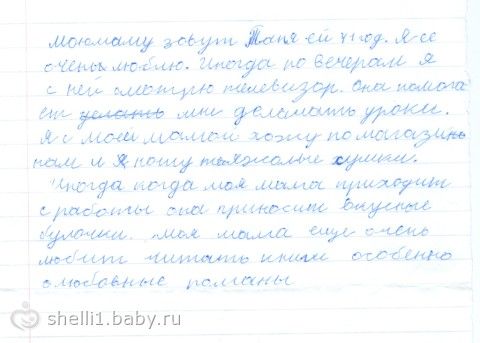 моюмаму зовут Таня ей 41 год. Я её
очень люблю. Иногда по вечерам я
с ней смотрю телевизор. Она помога
ет делать мне делать уроки.
Я с моей мамой хожу по магази
нам и я ношу тяжолые сумки.
Иногда когда моя мама приходит
с работы она приносит вкусные
булочки. Моя мама еще очень
любит читать книги особенно
о любовные романы
shelli1.baby.ru